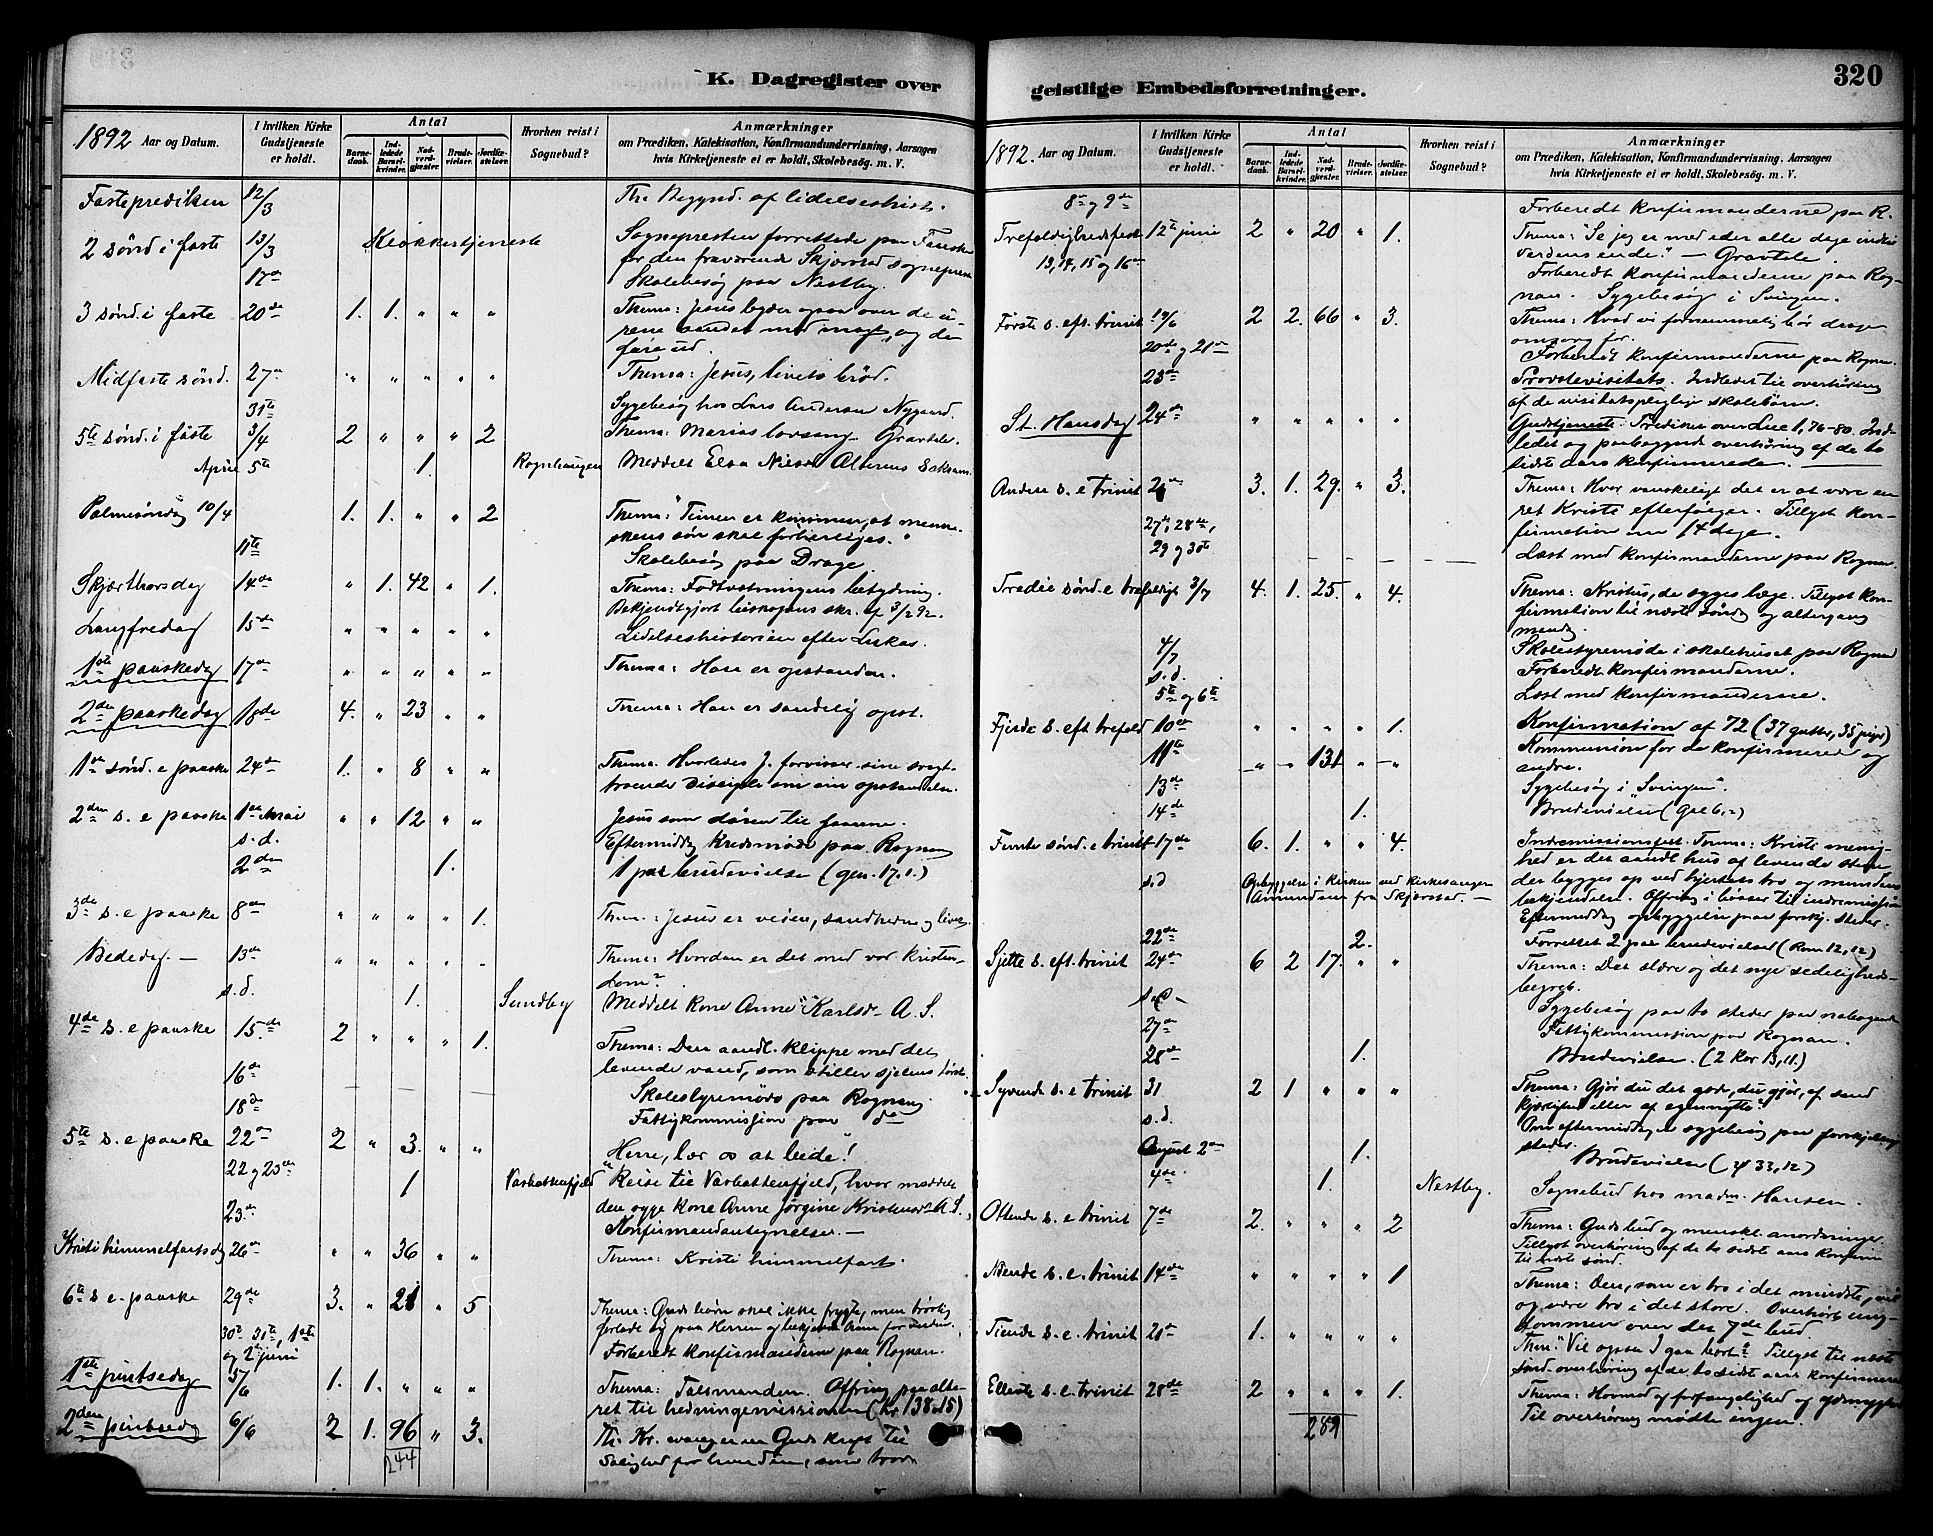 K. Dagregister over geistlige Embedsforretninger.
320
1892 Aar og Datum.
I hvilken Kirke Gudstjeneste er holdt.
Antal
Barnedaab.
Indledede Barselkvinder.
Nadverdgjæster.
Brudevielser.
Jordfæstelser.
Hvorhen reist i Sognebud?
Anmærkninger
om Prædiken, Katekisation, Konfirmandundervisning, Aarsagen
hvis Kirketjeneste ei er holdt, Skolebesøg. m. V.
Fasteprediken 12/3 Th. Begynd. af lidelseshist.
2 sønd i faste 13/3 Klokkertjeneste Sognepresten forrettede paa Fauske
for den fraværende Skjerstad sogneprest
17de Skolebesøg paa Nestby.
3 sønd. i faste 20de 1. 1. " " " Thema: Jesus byder ogsaa over de u-
rene aander med magt, og de
fare ud.
Midfaste sønd. 27de " " " " " Thema: Jesus, livets brød.
31te Sygebesøg hos Lars Andersen Nygaard.
5te sønd. i faste 3/4 2 " " " 2 Thema: Marias lovsang. Gravtale.
April 5te 1. Rognhaugen Meddelt Elsa Nielsd. Alterens Saksam.
Palmesøndag 10/4 1. 1. " " 2 Thema: "Timen er kommen, at menne-
skens søn skal forherliges."
11te Skolebesøg paa Drage.
Skjærthorsdag 14de " 1. 42 " 1. Thema: Fodtvætningens betydning.
Bekjendtgjort biskopens skr. af 3/2 92.
Langfredag 15de " " " " " Lidelseshistorien efter Lukas.
1ste paaskedag 17de " " " " " Thema: Han er opstanden.
2den paaskedag 18de 4. " 23 " " Thema: Han er sandelig opst.
1ste sønd. e paaske 24de 1. " 8 " " Thema. Hvorledes J. forvisser sine svagt-
troende Disciple om sin opstandelse.
2den s. e paaske 1ste Mai " " 12 " " Jesus som døren til faarene.
s. d. Eftermiddag Kredsmøde paa Rognan
2den 1. 1 par brudevielse (gen. 17.1.)
3de s. e paaske 8de " " " " 1. Them.: Jesus er veien, sandheden og livet.
Bededag. – 13de " " " " " Thema: Hvordan er det med vor Kristen-
dom?
s. d. 1. Sundby Meddelt kone Anne Karlsd. A. S.
4de s. e paaske 15de 2 " " " 1. Thema: Den aandl. klippe med det
levende vand, som stiller sjelens tørst.
16de Skolestyremøde paa Rognan
18de Fattigkommission paa do
5te s. e paaske 22de 2 " 3. " " "Herre, lær os at bede!"
22 og 23de 1 Varbattenfjeld Reise til Varbattenfjeld, hvor meddelt
den syge kone Anne Jørgine Kristensd. A. S.
23de Konfirmandantegnelse. –
Kristi himmelfartsdag 26de " " 36 " " Thema: Kristi himmelfart.
6te s e. paaske 29de 3. " 21 " 5 Thema: Guds børn skal ikke frygte, men trøstig
forlade sig paa Herren og bekjende ham for verden.
30te 31te, 1ste og 2den juni Forberedt Konfirmanderne paa Rognan.
1ste pintsedag 5/6 1. 1. " " " Thema: Talsmanden. Offring paa alte-
ret til hedningemissionen (Kr. 138.15)
2den pintsedag 6/6 2 1. 96 " 3. Th. Kr. evang. er en Guds kraft til
Salighed for hver den, som tror
244
1892. Aar og Datum.
I hvilken Kirke Gudstjeneste er holdt.
Antal
Barnedaab.
Indledede Barselkvinder.
Nadverdgjæster.
Brudevielser.
Jordfæstelser.
Hvorhen reist i Sognebud?
Anmærkninger
om Prædiken, Katekisation, Konfirmandundervisning, Aarsagen
hvis Kirketjeneste ei er holdt, Skolebesøg. m. V.
8de og 9de Forberedt Konfirmanderne paa R.
Trefoldighedsfest 12te juni 2 " 20 " 1. Thema: "Se jeg er med eder alle dage indtil
verdens ende." – Gravtale.
13, 14, 15 og 16de Forberedt Konfirmanderne paa Rog-
nan. Sygebesøg i Svingen.
Første s. eft. trinit 19/6 2 2. 66 " 3. Thema: Hvad vi fornemmelig bør drage
omsorg for.
20de og 21de Forberedt Konfirmanderne paa Rognan.
23de Provstevisitats. Indledet til overhøring
af de visitatspligtige skolebørn.
St. Hansdag 24de " " " " " Gudstjeneste. Prediken over Luc 1, 76-80. Ind-
ledet og paabegyndt overhøring af de to
sidste aars konfirmerede.
Anden s. e trinit 26de 3. 1. 29. " 3. Thema: Hvor vanskeligt det er at være en
ret Kristi efterfølger. Tillyst kon-
firmation om 14 dage.
27de, 28de, 29 og 30te Læst med konfirmanderne paa Rognan.
Tredie sønd. e trefoldigh 3/7 4. 1. 25. " 4. Thema: Kristus, de syges læge. Tillyst Kon-
firmation til næste søndag og altergang
mandag.
4/7 Skolestyremøde i skolehuset paa Rognan
s. d. Forberedt Konfirmanderne.
5te og 6te Læst med Konfirmanderne.
Fjerde s. eft trefold 10de " " " " 1. Konfirmation af 72 (37 gutter, 35 piger)
11te " " 131 " " Kommunion for de konfirmerede og
andre.
13de Sygebesøg i "Svingen".
14de 1. Brudevielse (Gal 6, 2)
Femte sønd. e trinit 17de 6. 1. " " 4. Indremissionsfest. Tema: Kristi menig-
hed er det aandl hus af levende stene
der bygges op ved hjertets tro og mundens
bekjendelse. Offring i bøsser til indremission
s. d Opbyggelse i kirken ved kirkesanger Amundsen fra Skjerstad. – Eftermiddag opbyggelse paa forskj. steder.
22de 2. Forrettet 2 par brudevielser (Rom 12, 12)
Sjette s. eft. trinit 24de 6 2 17. " " Thema: Det ældre og det nye sædeligheds-
begreb.
s. d – Sygebesøg paa to steder paa
27de Fattigkommission paa Rognan.
28de 1. Brudevielse. (2 Kor 13, 11.)
Syvende s. e trinit 31 2 1 " " " Thema: Gjør du det gode, du gjør, af sand
kjærlighed eller af egennytte?
s. d. Om eftermiddag sygebesøg paa forskjellige
steder.
August 2den 1. Brudevielse (ψ 33, 12)
4de 1. Nestby. Sognebud hos madm. Hansen.
Ottende s. e trinit 7de 2. " " " 2 Thema: Guds bud og menskl. anordninger.
Tillyst overhøring af de to sidste aars konfirm
til næste sønd.
Niende s. e. trinit 14de " " " " 1 Thema: Den, som er tro i det mindste, vil
og være tro i det store. Overhørt ung-
dommen over det 7de bud.
Tiende s. e. trinit 21de 1. " " " " Them: "Vil ogsaa I gaa bort?" Tillyst til næste
sønd. overhøring af de to sidste aars konfirmerede
Ellevte s. e. trinit 28de 2 " " " 1. Thema: Hovmod og forfængelighed og ydmyghed
Til overhøring mødte ingen.
289